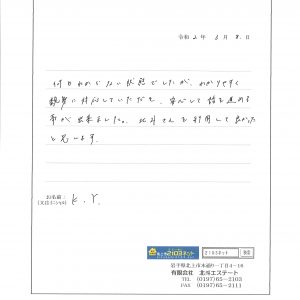 令和 2 年 3 月 8 日
何もわからない状態でしたが、わかりやすく
親身に対応していただき、安心して話を進める
事が出来ました。北洲さんを利用して良かった
と思います。
お名前
(又はイニシャル) K.Y.
2103ネット
岩手県北上市本通り一丁目4-16
有限会社 北洲エステート
TEL (0197)65-2103
FAX (0197)65-2111